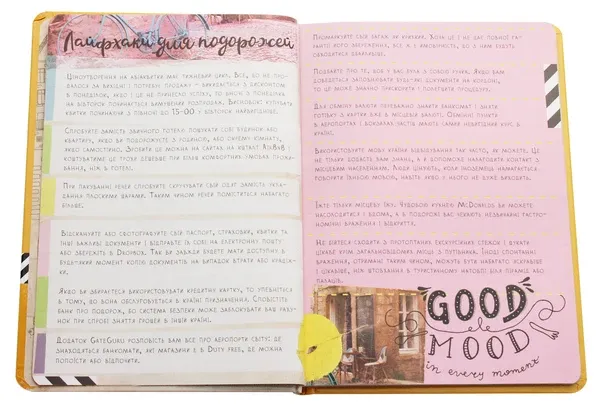 Лайфхаки для подорожей
Ціноутворення на авіаквитки має тижневий цикл. Все, що не про-
далося за вихідні і потребує продажу – викидається з дисконтом
в понеділок, якщо і це не принесло успіх, то вночі з понеділка
на вівторок починається банкрутський розпродаж. Висновок: купувати
квитки починаючи з півночі до 15-00 у вівторок найвигідніше.
Спробуйте замість звичного готелю пошукати собі будинок або
квартиру, якщо ви подорожуєте з родиною, або окрему кімнату,
якщо самостійно. Зробити це можна на сайтах на кшталт AirBnB і
коштуватиме це трохи дешевше при більш комфортних умовах прожи-
вання, ніж в готелі.
При пакуванні речей спробуйте скручувати свій одяг замість укла-
дання плоскими шарами. Таким чином речей поміститься набагато
більше.
Відскануйте або сфотографуйте свій паспорт, страховки, квитки та
інші важливі документи і відправте їх собі на електронну пошту
або збережіть в Dropbox. Так ви завжди будете мати доступну в
будь-який момент копію документів на випадок втрати або крадіж-
ки.
Якщо ви збираєтеся використовувати кредитну картку, то упевніться
в тому, що вона обслуговується в країні призначення. Сповістіть
банк про подорож, бо система безпеки може заблокувати ваш раху-
нок при спробі зняття грошей в іншій країні.
Додаток GateGuru розповість вам все про аеропорти світу: де
знаходяться банкомати, які магазини є в Duty free, де можна
попоїсти або відпочити.
Промаркуйте свій багаж як крихкий. Хоча це і не дає повної га-
рантії його збереження, все ж є ймовірність, що з ним будуть
обходитися обережніше.
Подбайте про те, щоб у вас була з собою ручка. Якщо вам
доведеться заповнювати будь-які документи на кордоні,
то це може значно прискорити і полегшити процедуру.
Для обміну валюти переважно знайти банкомат і зняти
готівку з картки вже в місцевій валюті. Обмінні пункти
в аеропортах і вокзалах часто мають самий невигідний курс в
країні.
Використовуйте мову країни відвідування так часто, як можете. Це
не тільки додасть вам знань, а й допоможе налагодити контакт з
місцевим населенням. Люди цінують, коли іноземець намагається
говорити їхньою мовою, навіть якщо у нього не дуже виходить.
Їжте тільки місцеву їжу. Чудовою кухнею McDonalds ви можете
насолодитися і вдома, а в подорожі вас чекають незвичайні гастро-
номічні враження і відкриття.
Не бійтеся сходити з протоптаних екскурсійних стежок і шукати
цікаве крім загальновідомих місць з путівника. Іноді спонтанні
враження, отримані таким чином, можуть бути набагато яскравіше
і цікавіше, ніж штовхання в туристичному натовпі біля піраміди або
палаців.
GOOD
MOOD
in every moment